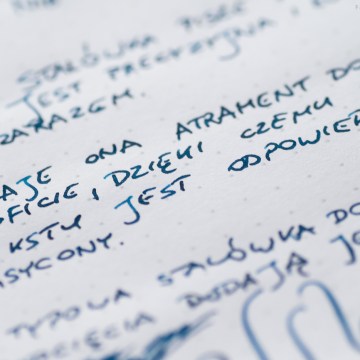 STALÓWKA PISZE
JEST PRECYZYJNA I
ZARAZEM.
ONA ATRAMENT DO
OFICIE, DZIĘKI CZEMU
JEST ODPOWIE
SYCONY.
TYPOWA STALÓWKA DO
DODAJĄ